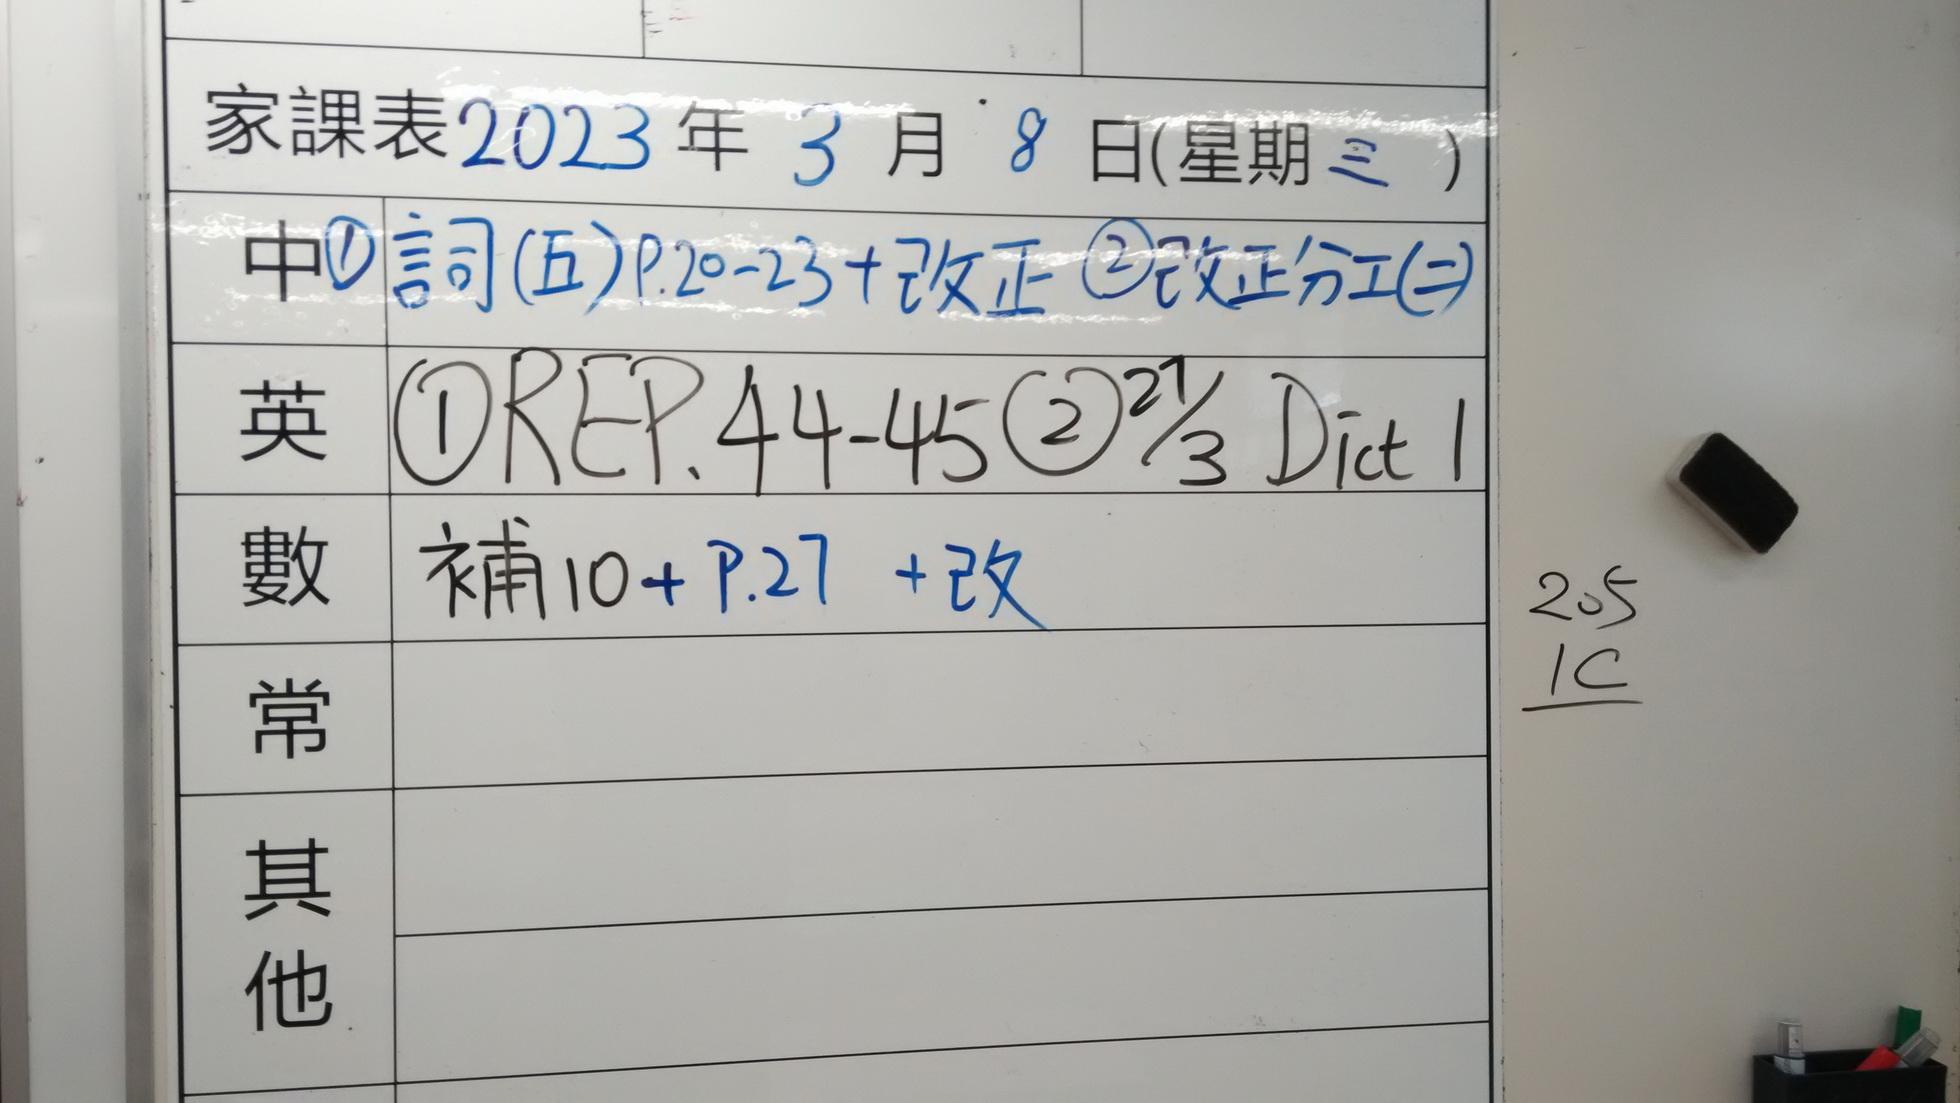 家課表2023年3月8日(星期三)
中①詞(五)P.20-23+改正 ②改正分工(二)
英 ①REP.44-45②27/3 Dict 1
數 補10+P.27 +改
常
其他
205
1C